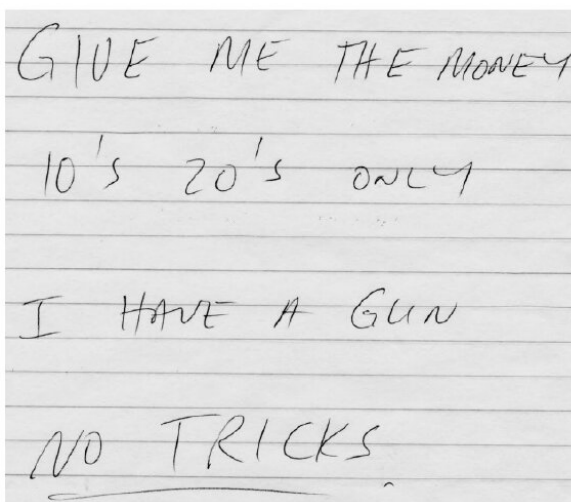 GIVE ME THE MONEY
10's 20's ONLY
I HAVE A GUN
NO TRICKS.